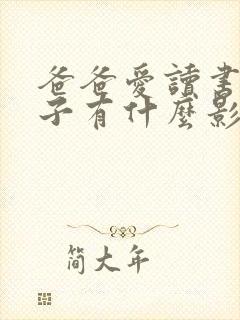 爸爸愛讀書
子有什麼影
簡大年